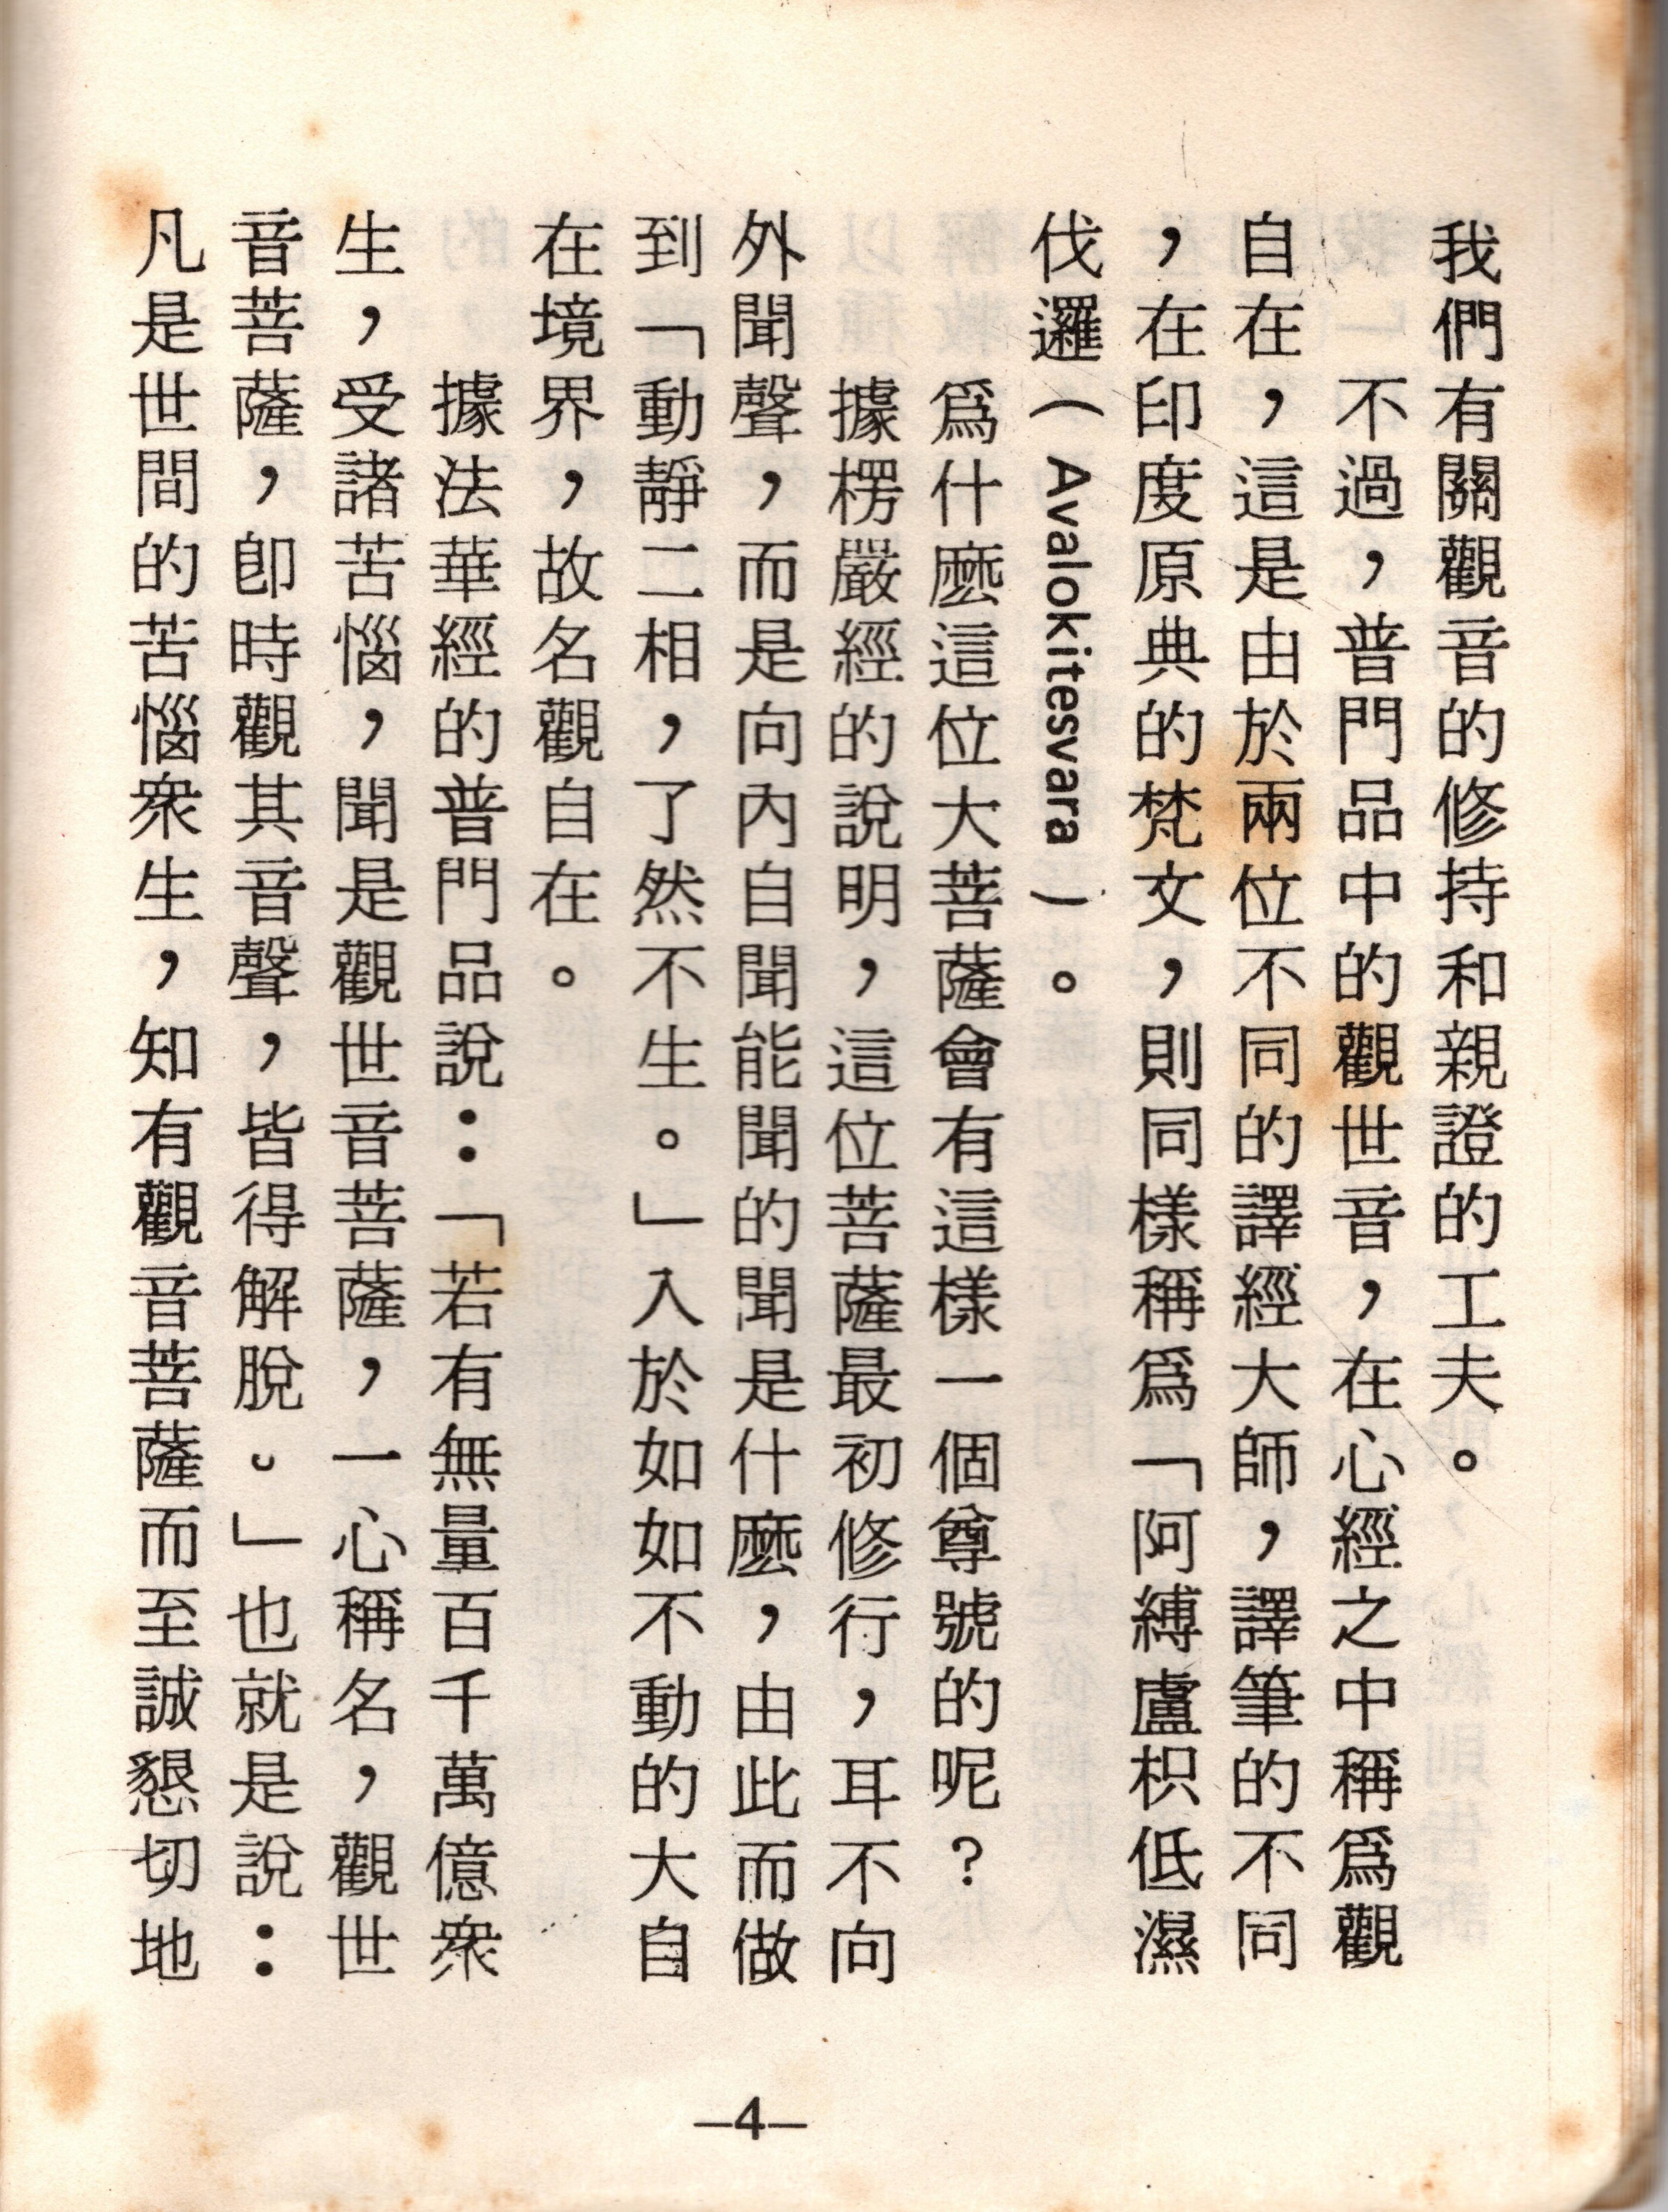 我們有關觀音的修持和親證的工夫。
不過，普門品中的觀世音，在心經之中稱爲觀
自在，這是由於兩位不同的譯經大師，譯筆的不同
，在印度原典的梵文，則同樣稱爲「阿縛盧枳低濕
伐邏（Avalokitesvara）。
爲什麼這位大菩薩會有這樣一個尊號的呢？
據楞嚴經的說明，這位菩薩最初修行，耳不向
外聞聲，而是向內自聞能聞的聞是什麼，由此而做
到「動靜二相，了然不生。」入於如如不動的大自
在境界，故名觀自在。
據法華經的普門品說：「若有無量百千萬億衆
生，受諸苦惱，聞是觀世音菩薩，一心稱名，觀世
音菩薩，卽時觀其音聲，皆得解脫。」也就是說：
凡是世間的苦惱衆生，知有觀音菩薩而至誠懇切地
—4—